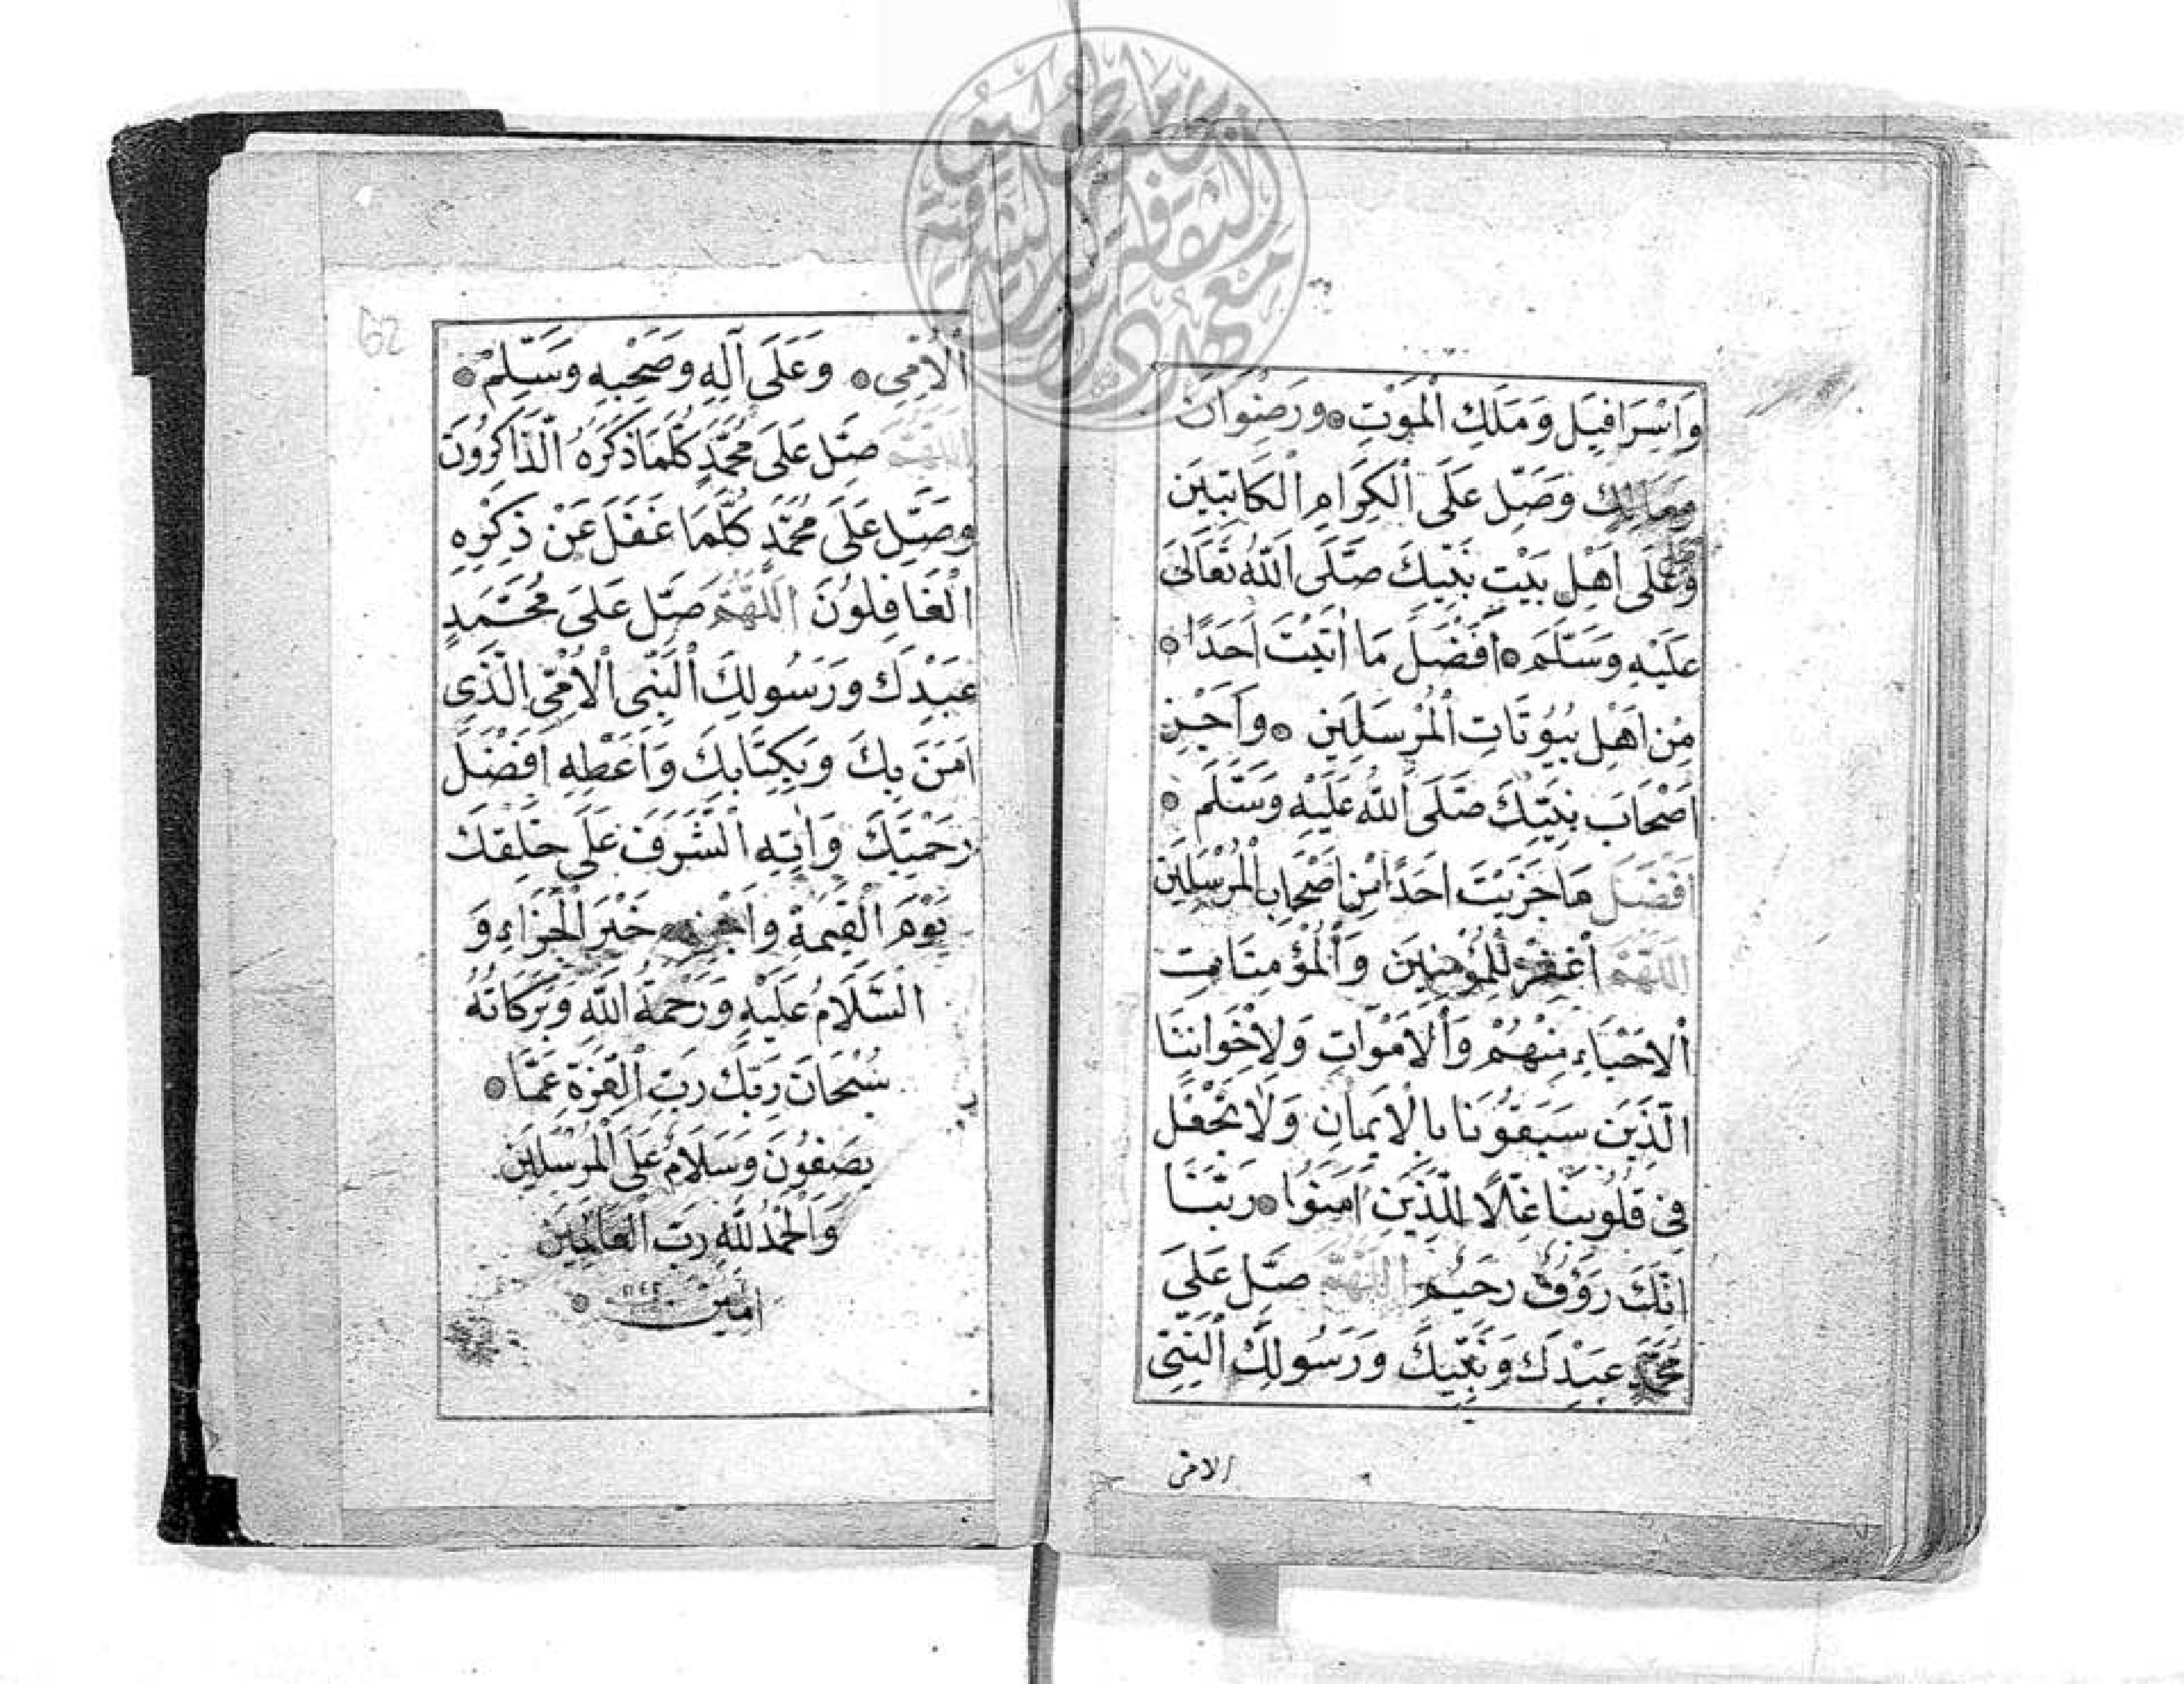 وَاِسْرَافِيلَ وَمَلَكِ الْمَوْتِ ۞ وَرِضْوَانَ
وَمَالِكٍ وَصَلِّ عَلَى الْكِرَامِ الْكَاتِبِينَ
وَعَلَى اَهْلِ بَيْتِ نَبِيِّكَ صَلَّى اللّٰهُ تَعَالٰى
عَلَيْهِ وَسَلَّمَ ۞ اَفْضَلَ مَا اٰتَيْتَ اَحَدًا ۞
مِنْ اَهْلِ بُيُوتَاتِ الْمُرْسَلِينَ ۞ وَاَجْزِ
اَصْحَابَ نَبِيِّكَ صَلَّى اللّٰهُ عَلَيْهِ وَسَلَّمَ ۞
اَفْضَلَ مَا جَزَيْتَ اَحَدًا مِنْ اَصْحَابِ الْمُرْسَلِينَ
اَللّٰهُمَّ اغْفِرْ لِلْمُؤْمِنِينَ وَالْمُؤْمِنَاتِ
الْاَحْيَاءِ مِنْهُمْ وَالْاَمْوَاتِ وَلِاِخْوَانِنَا
الَّذِينَ سَبَقُونَا بِالْاِيمَانِ وَلَا تَجْعَلْ
فِى قُلُوبِنَا غِلًّا لِلَّذِينَ اٰمَنُوا ۞ رَبَّنَا
اِنَّكَ رَؤُفٌ رَحِيمٌ اَللّٰهُمَّ صَلِّ عَلَى
مُحَمَّدٍ عَبْدِكَ وَنَبِيِّكَ وَرَسُولِكَ النَّبِىِّ
الامى
الْاُمِّىِ ۞ وَعَلَى اٰلِهِ وَصَحْبِهِ وَسَلِّمْ ۞
اَللّٰهُمَّ صَلِّ عَلَى مُحَمَّدٍ كُلَّمَا ذَكَرَهُ الذَّاكِرُونَ
وَصَلِّ عَلَى مُحَمَّدٍ كُلَّمَا غَفَلَ عَنْ ذِكْرِهِ
الْغَافِلُونَ اَللّٰهُمَّ صَلِّ عَلَى مُحَمَّدٍ
عَبْدِكَ وَرَسُولِكَ النَّبِىِّ الْاُمِّىِّ الَّذِى
اٰمَنَ بِكَ وَبِكِتَابِكَ وَاَعْطِهِ اَفْضَلَ
رَحْمَتِكَ وَاٰتِهِ الشَّرَفَ عَلَى خَلْقِكَ
يَوْمَ الْقِيٰمَةِ وَاجْزِهِ خَيْرَ الْجَزَاءِ وَ
السَّلَامُ عَلَيْهِ وَرَحْمَةُ اللّٰهِ وَبَرَكَاتُهُ
سُبْحَانَ رَبِّكَ رَبِّ الْعِزَّةِ عَمَّا ۞
يَصِفُونَ وَسَلَامٌ عَلَى الْمُرْسَلِينَ
وَالْحَمْدُ لِلّٰهِ رَبِّ الْعَالَمِينَ
اٰمِينَ ۞